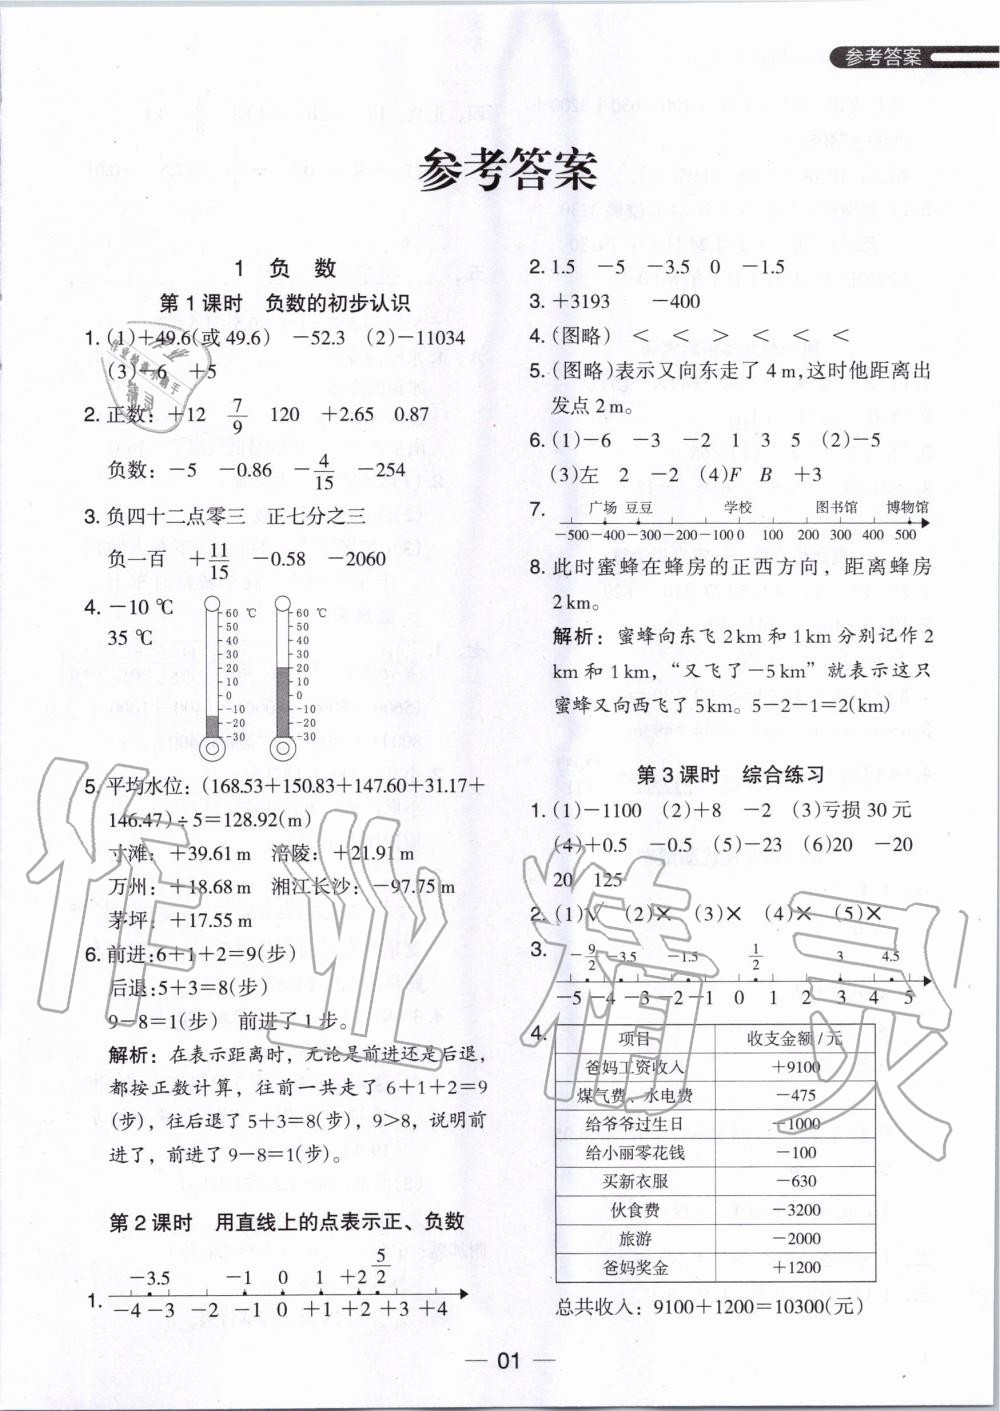 参考答案
参考答案
1 负 数
第1课时 负数的初步认识
1. (1)+49.6(或49.6) −52.3 (2)−11034
(3)−6 +5
2. 正数：+12 7/9 120 +2.65 0.87
负数：−5 −0.86 −4/15 −254
3. 负四十二点零三 正七分之三
负一百 +11/15 −0.58 −2060
4. −10 ℃
35 ℃
60 ℃ 60 ℃
50 50
40 40
30 30
20 20
10 10
0 0
−10 −10
−20 −20
−30 −30
5. 平均水位：(168.53+150.83+147.60+31.17+
146.47)÷5=128.92(m)
寸滩：+39.61 m 涪陵：+21.91 m
万州：+18.68 m 湘江长沙：−97.75 m
茅坪：+17.55 m
6. 前进:6+1+2=9(步)
后退:5+3=8(步)
9−8=1(步) 前进了1步。
解析：在表示距离时，无论是前进还是后退，
都按正数计算，往前一共走了6+1+2=9
(步)，往后退了5+3=8(步)，9>8，说明前
进了，前进了9−8=1(步)。
第2课时 用直线上的点表示正、负数
1.
−3.5 −1 0 1 +2 5/2
−4 −3 −2 −1 0 +1 +2 +3 +4
2. 1.5 −5 −3.5 0 −1.5
3. +3193 −400
4. (图略) < < > < < <
5. (图略)表示又向东走了4 m,这时他距离出
发点2 m。
6. (1)−6 −3 −2 1 3 5 (2)−5
(3)左 2 −2 (4)F B +3
7.
广场 豆豆 学校 图书馆 博物馆
−500 −400 −300 −200 −100 0 100 200 300 400 500
8. 此时蜜蜂在蜂房的正西方向，距离蜂房
2 km。
解析：蜜蜂向东飞2 km和1 km分别记作2
km和1 km，“又飞了−5 km”就表示这只
蜜蜂又向西飞了5 km。5−2−1=2(km)
第3课时 综合练习
1. (1)−1100 (2)+8 −2 (3)亏损30元
(4)+0.5 −0.5 (5)−23 (6)20 −20
20 125
2. (1)√ (2)× (3)× (4)× (5)×
3.
−9/2 −3.5 −1.5 1/2 3 4.5
−5 −4 −3 −2 −1 0 1 2 3 4 5
4.
项目 收支金额/元
爸妈工资收入 +9100
煤气费、水电费 −475
给爷爷过生日 −1000
给小丽零花钱 −100
买新衣服 −630
伙食费 −3200
旅游 −2000
爸妈奖金 +1200
总共收入：9100+1200=10300(元)
— 01 —
作业精灵